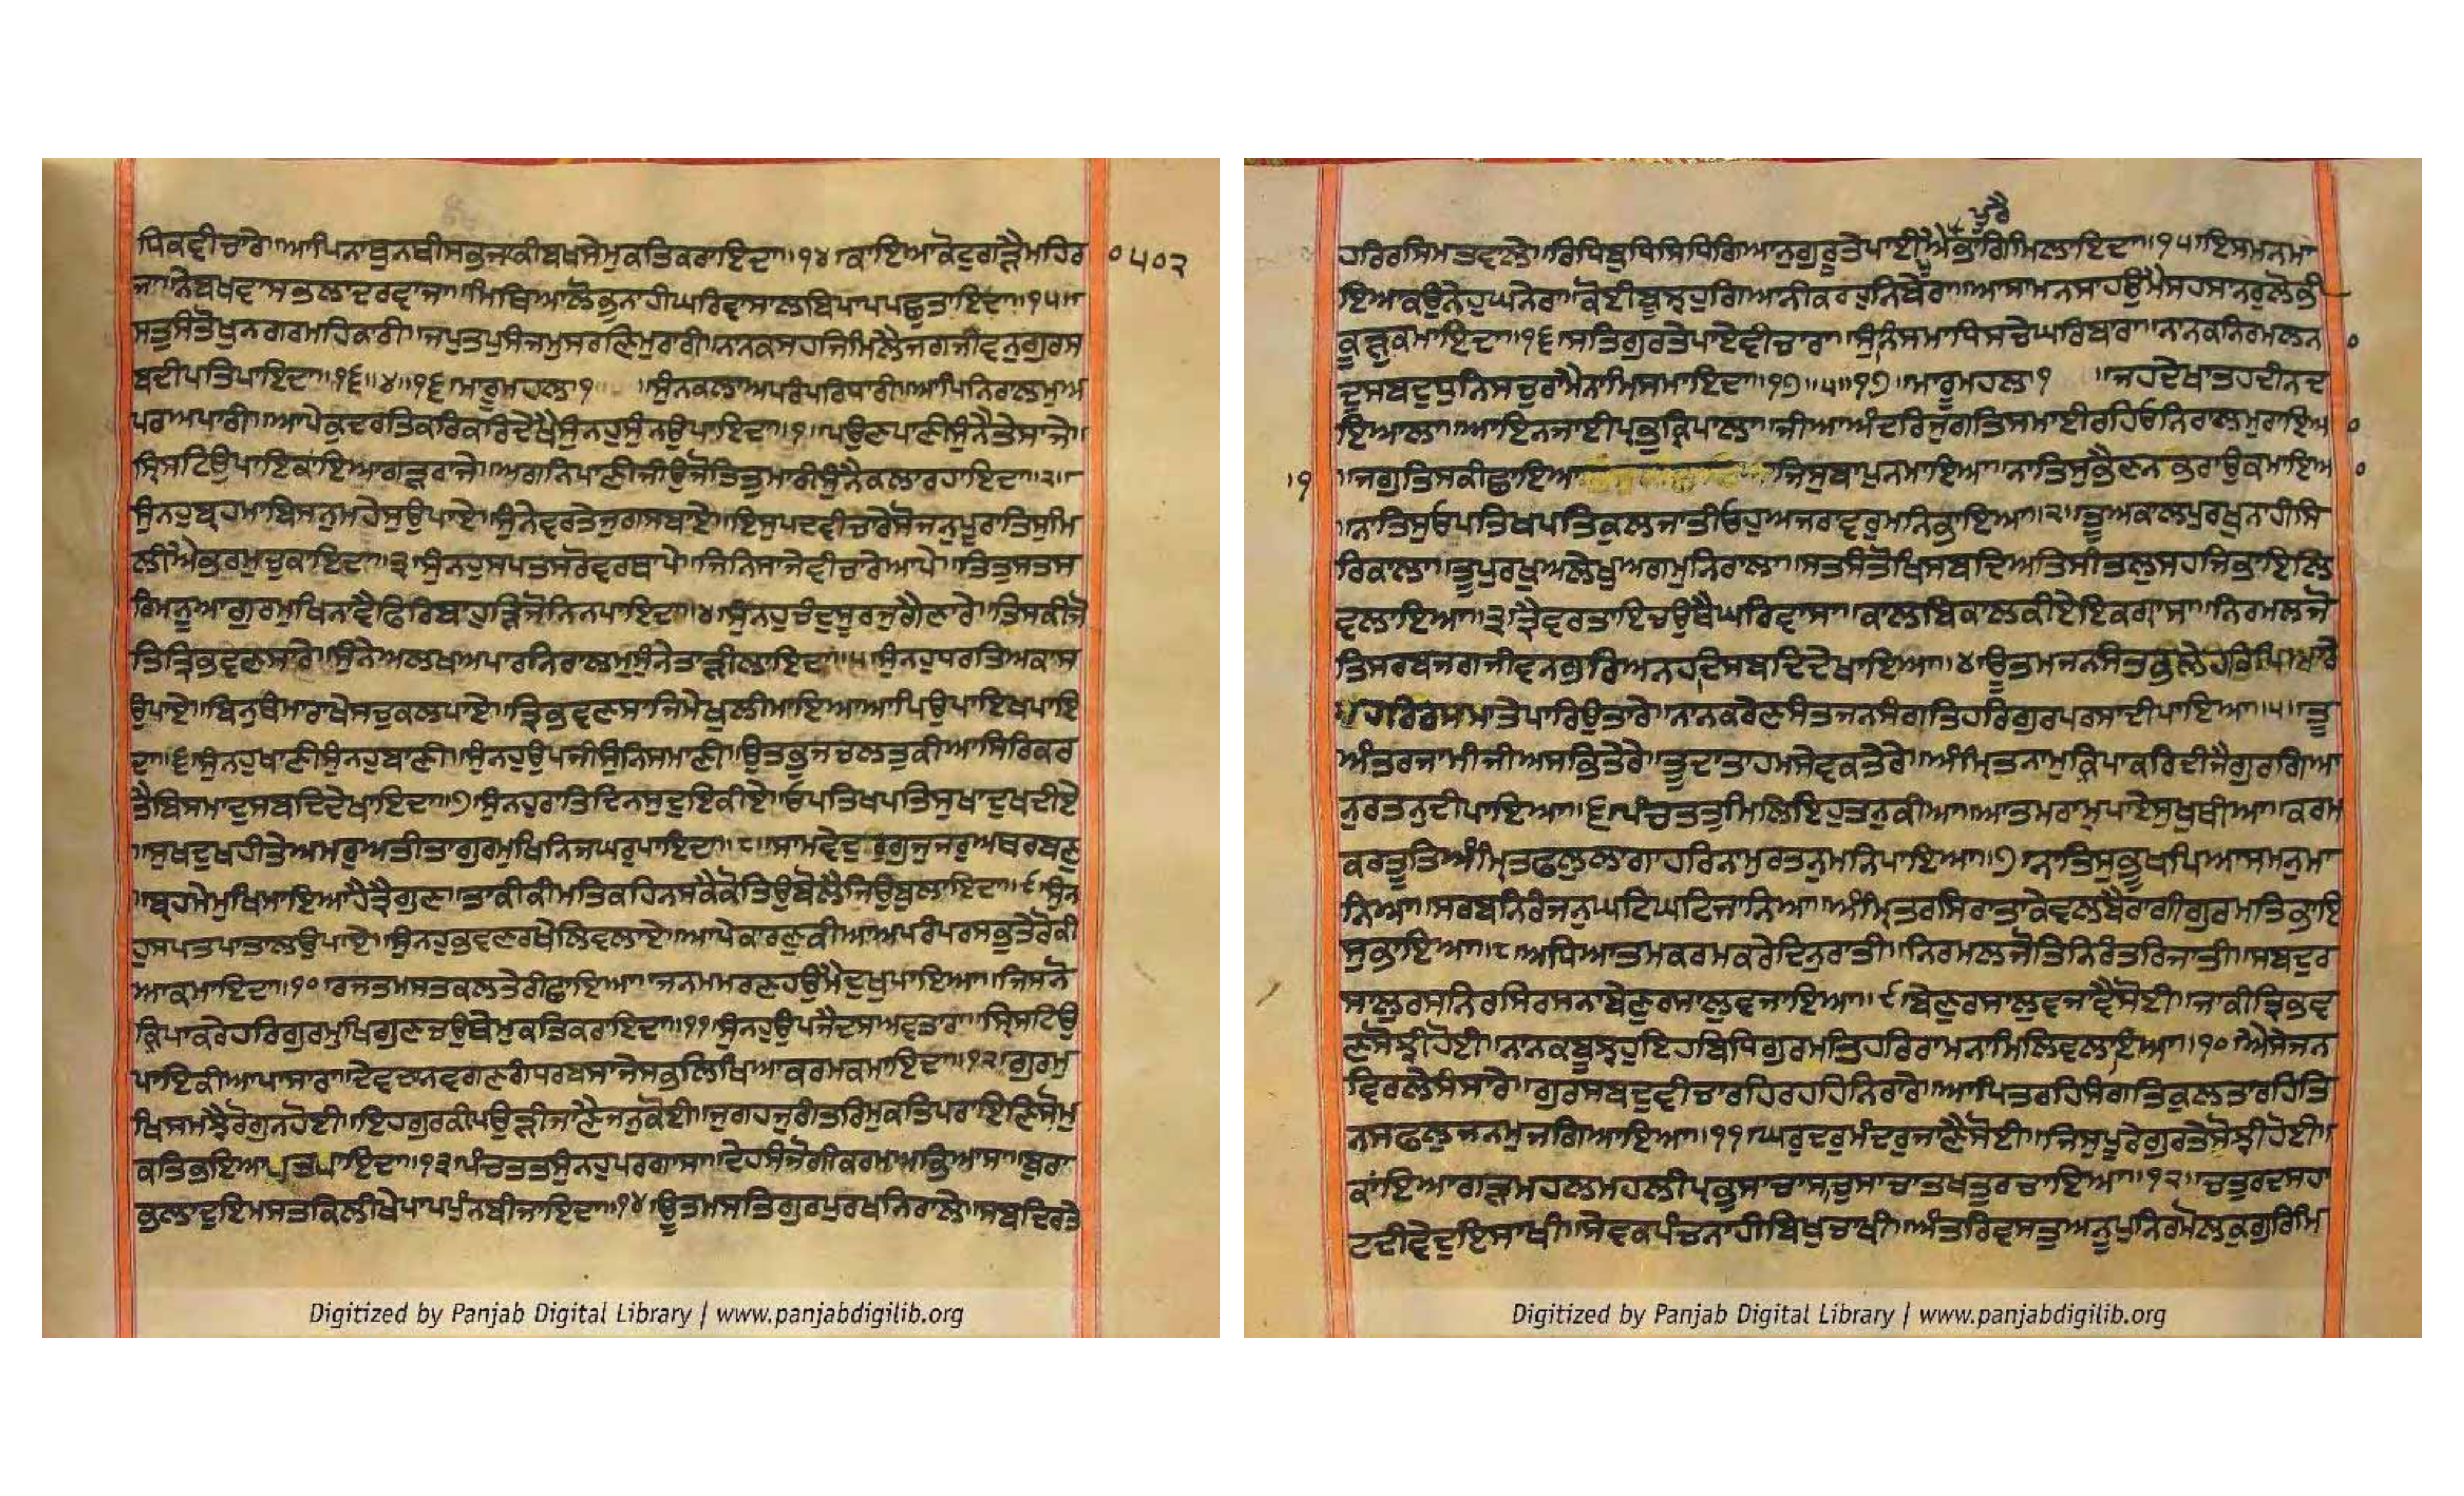 ਧਿਕਵੀਚਾਰੇ॥ਆਪਿਨਾਬੁਨਬੀਸਕੁਜਕੀਬਖਸੇਮੁਕਤਿਕਰਾਇਦਾ॥੧੪॥ਕਾਇਆਕੋਟੁਗੜੈਮਹਿਰ
੦੫੦੨
ਜਾ॥ਨੇਬਖਵਾਸਭਲਾਦਰਵਾਜਾ॥ਮਿਥਿਆਲੋਭੁਨਾਹੀਘਰਿਵਾਸਾਲਬਿਪਾਪਪਛੁਤਾਇਦਾ॥੧੫॥
ਸਤੁਸੰਤੋਖੁਨਗਰਮਹਿਕਾਰੀ॥ਜਪੁਤਪੁਸੰਜਮੁਸਰਣਿਮੁਰਾਰੀ॥ਨਾਨਕਸਹਜਿਮਿਲੈਜਗਜੀਵਨੁਗੁਰਸ
ਬਦੀਪਤਿਪਾਇਦਾ॥੧੬॥੪॥੧੬॥ਮਾਰੂਮਹਲਾ੧ ॥ਸੁੰਨਕਲਾਅਪਰੰਪਰਿਧਾਰੀ॥ਆਪਿਨਿਰਾਲਮੁਅ
ਪਰਅਪਾਰੀ॥ਆਪੇਕੁਦਰਤਿਕਰਿਕਰਿਦੇਖੈਸੁੰਨਹੁਸੁੰਨਉਪਾਇਦਾ॥੧॥ਪਉਣਪਾਣੀਸੁੰਨੈਤੇਸਾਜੇ॥
ਸ੍ਰਿਸਟਿਉਪਾਇਕਾਇਆਗੜਰਾਜੇ॥ਅਗਨਿਪਾਣੀਜੀਉਜੋਤਿਤੁਮਾਰੀਸੁੰਨੈਕਲਾਰਹਾਇਦਾ॥੨॥
ਸੁੰਨਹੁਬ੍ਰਹਮਾਬਿਸਨੁਮਹੇਸੁਉਪਾਏ॥ਸੁੰਨੇਵਰਤੇਜੁਗਸਬਾਏ॥ਇਸੁਪਦਵੀਚਾਰੇਸੋਜਨੁਪੂਰਾਤਿਸੁਮਿ
ਲੀਐਭਰਮੁਚੁਕਾਇਦਾ॥੩॥ਸੁੰਨਹੁਸਪਤਸਰੋਵਰਥਾਪੇ॥ਜਿਨਿਸਾਜੇਵੀਚਾਰੇਆਪੇ॥ਤਿਤੁਸਤਸ
ਰਿਮਨੂਆਗੁਰਮੁਖਿਨਾਵੈਫਿਰਿਬਾਹੁੜਿਜੋਨਿਨਪਾਇਦਾ॥੪॥ਸੁੰਨਹੁਚੰਦੁਸੂਰਜੁਗੈਣਾਰੇ॥ਤਿਸਕੀਜੋ
ਤਿਤ੍ਰਿਭਵਣਸਾਰੇ॥ਸੁੰਨੇਅਲਖਅਪਾਰਨਿਰਾਲਮੁਸੁੰਨੇਤਾੜੀਲਾਇਦਾ॥੫॥ਸੁੰਨਹੁਧਰਤਿਅਕਾਸ
ਉਪਾਏ॥ਬਿਨੁਥੰਮਾਰਾਖੇਸਚੁਕਲਪਾਏ॥ਤ੍ਰਿਭਵਣਸਾਜਿਮੇਖੁਲੀਮਾਇਆਆਪਿਉਪਾਇਖਪਾਇ
ਦਾ॥੬॥ਸੁੰਨਹੁਖਾਣੀਸੁੰਨਹੁਬਾਣੀ॥ਸੁੰਨਹੁਉਪਜੀਸੁੰਨਿਸਮਾਣੀ॥ਉਤਭੁਜਚਲਤੁਕੀਆਸਿਰਿਕਰ
ਤੈਬਿਸਮਾਦੁਸਬਦਿਦੇਖਾਇਦਾ॥੭॥ਸੁੰਨਹੁਰਾਤਿਦਿਨਸੁਦੁਇਕੀਏ॥ਓਪਤਿਖਪਤਿਸੁਖਾਦੁਖਦੀਏ
॥ਸੁਖਦੁਖਹੀਤੇਅਮਰੁਅਤੀਤਾਗੁਰਮੁਖਿਨਿਜਘਰੁਪਾਇਦਾ॥੮॥ਸਾਮਵੇਦੁਰੁਗੁਜੁਜਰੁਅਥਰਬਣੁ
॥ਬ੍ਰਹਮੇਮੁਖਿਮਾਇਆਹੈਤ੍ਰੈਗੁਣ॥ਤਾਕੀਕੀਮਤਿਕਹਿਨਸਕੈਕੋਤਿਉਬੋਲੈਜਿਉਬੁਲਾਇਦਾ॥੯॥ਸੁੰਨ
ਹੁਸਪਤਪਾਤਾਲਉਪਾਏ॥ਸੁੰਨਹੁਭਵਣਰਖੇਲਿਵਲਾਏ॥ਆਪੇਕਾਰਣੁਕੀਆਅਪਰੰਪਰਸਭੁਤੇਰੋਕੀ
ਆਕਮਾਇਦਾ॥੧੦॥ਰਜਤਮਸਤਕਲਤੇਰੀਛਾਇਆ॥ਜਨਮਮਰਣਹਉਮੈਦੁਖੁਪਾਇਆ॥ਜਿਸਨੋ
ਕ੍ਰਿਪਾਕਰੇਹਰਿਗੁਰਮੁਖਿਗੁਣਚਉਥੈਮੁਕਤਿਕਰਾਇਦਾ॥੧੧॥ਸੁੰਨਹੁਉਪਜੇਦਸਅਵਤਾਰਾ॥ਸ੍ਰਿਸਟਿਉ
ਪਾਇਕੀਆਪਾਸਾਰਾ॥ਦੇਵਦਾਨਵਗਣਗੰਧਰਬਸਾਜੇਸਭਲਿਖਿਆਕਰਮਕਮਾਇਦਾ॥੧੨॥ਗੁਰਮੁ
ਖਿਸਮਝੈਰੋਗੁਨਹੋਈ॥ਇਹਗੁਰਕੀਪਉੜੀਜਾਣੈਜਨੁਕੋਈ॥ਜੁਗਹਜੁਗੰਤਰਿਮੁਕਤਿਪਰਾਇਣਿਸੋਮੁ
ਕਤਿਭਇਆਪਤਿਪਾਇਦਾ॥੧੩॥ਪੰਚਤਤੁਸੁੰਨਹੁਪਰਗਾਸਾ॥ਦੇਹਸੰਜੋਗੀਕਰਮਅਭਿਆਸਾ॥ਬੁਰਾ
ਭਲਾਦੁਇਮਸਤਕਿਲੀਖੇਪਾਪਪੁੰਨਬੀਜਾਇਦਾ॥੧੪॥ਊਤਮਸਤਿਗੁਰਪੁਰਖਨਿਰਾਲੇ॥ਸਬਦਿਰਤੇ
Digitized by Panjab Digital Library | www.panjabdigilib.org
ਹਰਿਰਸਿਮਤਵਾਲੇ॥ਰਿਧਿਬੁਧਿਸਿਧਿਗਿਆਨੁਗੁਰੂਤੇਪਾਈਐਭਾਗਿਮਿਲਾਇਦਾ॥੧੫॥ਇਸਮਨਮਾ
ਇਆਕਉਨੇਹੁਘਨੇਰਾ॥ਕੋਈਬੂਝਹੁਗਿਆਨੀਕਰਹੁਨਿਬੇਰਾ॥ਆਸਾਮਨਸਾਹਉਮੈਸਹਸਾਨਰੁਲੋਭੀ
ਕੂੜੁਕਮਾਇਦਾ॥੧੬॥ਸਤਿਗੁਰਤੇਪਾਏਵੀਚਾਰਾ॥ਸੁੰਨਸਮਾਧਿਸਚੇਘਰਿਬਾਰਾ॥ਨਾਨਕਨਿਰਮਲਨ
ਦੁਸਬਦੁਧੁਨਿਸਚੁਰਾਮੈਨਾਮਿਸਮਾਇਦਾ॥੧੭॥੫॥੧੭॥ਮਾਰੂਮਹਲਾ੧ ॥ਜਹਦੇਖਾਤਹਦੀਨਦ
ਇਆਲਾ॥ਆਇਨਜਾਈਪ੍ਰਭੁਕਿਰਪਾਲਾ॥ਜੀਆਅੰਦਰਿਜੁਗਤਿਸਮਾਈਰਹਿਓਨਿਰਾਲਮੁਰਾਇਆ
।੧ ॥ਜਗੁਤਿਸਕੀਛਾਇਆ ਜਿਸੁਬਾਪੁਨਮਾਇਆ॥ਨਾਤਿਸੁਭੈਣਨਭਰਾਉਕਮਾਇਆ
॥ਨਾਤਿਸੁਓਪਤਿਖਪਤਿਕੁਲਜਾਤੀਓਹੁਅਜਰਾਵਰੁਮਨਿਭਾਇਆ॥੨॥ਤੂਅਕਾਲਪੁਰਖੁਨਾਹੀਸਿ
ਰਿਕਾਲਾ॥ਤੂਪੁਰਖੁਅਲੇਖਅਗਮੁਨਿਰਾਲਾ॥ਸਤਸੰਤੋਖਿਸਬਦਿਅਤਿਸੀਤਲੁਸਹਜਿਭਾਇਲਿ
ਵਲਾਇਆ॥੩॥ਤ੍ਰੈਵਰਤਾਇਚਉਥੈਘਰਿਵਾਸਾ॥ਕਾਲਬਿਕਾਲਕੀਏਇਕਗ੍ਰਾਸਾ॥ਨਿਰਮਲਜੋ
ਤਿਸਰਬਜਗਜੀਵਨਗੁਰਿਅਨਹਦਿਸਬਦਿਦੇਖਾਇਆ॥੪॥ਊਤਮਜਨਸੰਤਭਲੇਹਰਿਪਿਆਰੇ
॥ਹਰਿਰਸਮਾਤੇਪਾਰਿਉਤਾਰੇ॥ਨਾਨਕਰੇਣਸੰਤਜਨਸੰਗਤਿਹਰਿਗੁਰਪਰਸਾਦੀਪਾਇਆ॥੫॥ਤੂ
ਅੰਤਰਜਾਮੀਜੀਅਸਭਿਤੇਰੇ॥ਤੂਦਾਤਾਹਮਸੇਵਕਤੇਰੇ॥ਅੰਮ੍ਰਿਤਨਾਮੁਕ੍ਰਿਪਾਕਰਿਦੀਜੈਗੁਰਗਿਆ
ਨੁਰਤਨੁਦੀਪਾਇਆ॥੬॥ਪੰਚਤਤੁਮਿਲਿਇਹੁਤਨੁਕੀਆ॥ਆਤਮਰਾਮਪਾਏਸੁਖੁਥੀਆ॥ਕਰਮ
ਕਰਤੂਤਿਅੰਮ੍ਰਿਤਫਲੁਲਾਗਾਹਰਿਨਾਮੁਰਤਨੁਮਨਿਪਾਇਆ॥੭॥ਨਾਤਿਸੁਭੂਖਪਿਆਸਮਨੁਮਾ
ਨਿਆ॥ਸਰਬਨਿਰੰਜਨੁਘਟਿਘਟਿਜਾਨਿਆ॥ਅੰਮ੍ਰਿਤਰਸਿਰਾਤਾਕੇਵਲਬੈਰਾਗੀਗੁਰਮਤਿਭਾਇ
ਸੁਭਾਇਆ॥੮॥ਅਧਿਆਤਮਕਰਮਕਰੇਦਿਨੁਰਾਤੀ॥ਨਿਰਮਲਜੋਤਿਨਿਰੰਤਰਿਜਾਤੀ॥ਸਬਦੁਰ
ਸਾਲੁਰਸਨਿਰਸਿਰਸਨਾਬੇਣੁਰਸਾਲੁਵਜਾਇਆ॥੯॥ਬੇਣੁਰਸਾਲੁਵਜਾਵੈਸੋਈ॥ਜਾਕੀਤ੍ਰਿਭਵ
ਣਸੋਝੀਹੋਈ॥ਨਾਨਕਬੂਝਹੁਇਹਬਿਧਿਗੁਰਮਤਿਹਰਿਰਾਮਨਾਮਿਲਿਵਲਾਇਆ॥੧੦॥ਐਸੇਜਨ
ਵਿਰਲੇਸੰਸਾਰੇ॥ਗੁਰਸਬਦੁਵੀਚਾਰਹਿਰਹਹਿਨਿਰਾਰੇ॥ਆਪਿਤਰਹਿਸੰਗਤਿਕੁਲਤਾਰਹਿਤਿ
ਨਸਫਲੁਜਨਮੁਜਗਿਆਇਆ॥੧੧॥ਘਰੁਦਰੁਮੰਦਰੁਜਾਣੈਸੋਈ॥ਜਿਸੁਪੂਰੇਗੁਰਤੇਸੋਝੀਹੋਈ॥
ਕਾਂਇਆਗੜਮਹਲਮਹਲੀਪ੍ਰਭੁਸਾਚਾਸਚੁਸਾਚਾਤਖਤੁਰਚਾਇਆ॥੧੨॥ਚਤੁਰਦਸਹਾ
ਟਦੀਵੇਦੁਇਸਾਖੀ॥ਸੇਵਕਪੰਚਨਾਹੀਬਿਖੁਚਾਖੀ॥ਅੰਤਰਿਵਸਤੁਅਨੂਪੁਨਿਰਮੋਲਕਗੁਰਿਮਿ
Digitized by Panjab Digital Library | www.panjabdigilib.org